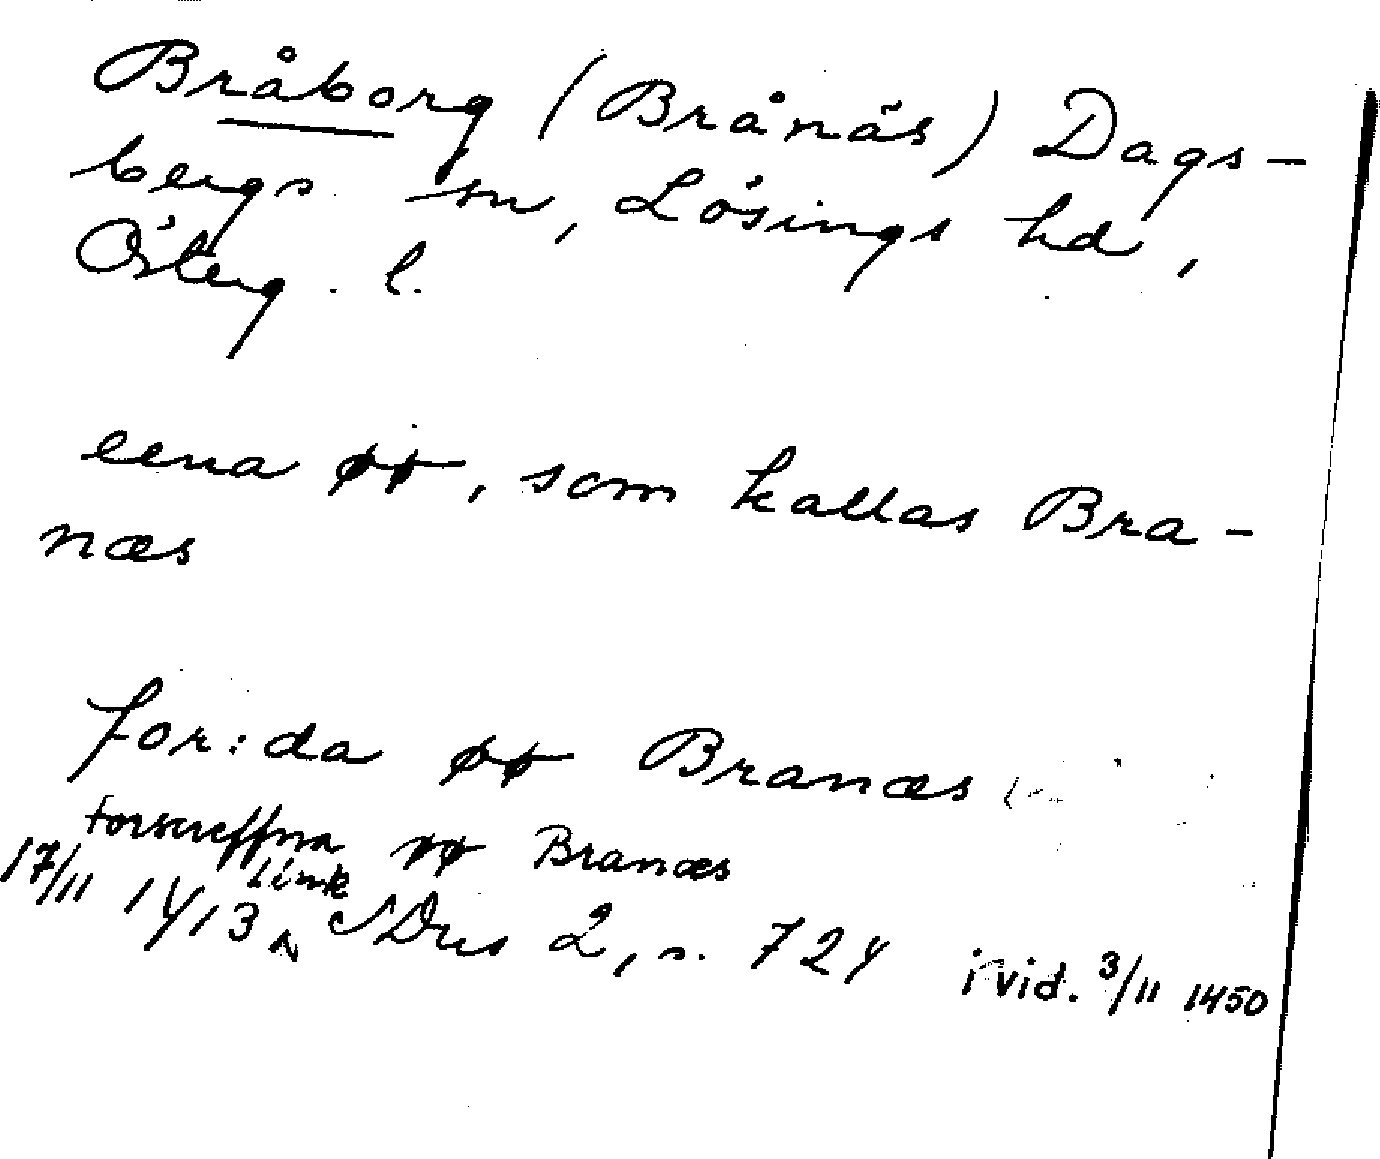 Bråborg (Brånäs) Dags-
bergs sn, Lösings hd,
Österg. l.
eena øø, som kallas Bra-
næs
for:da øø Branæs
forscreffna øø Branæs
17/11 1413 Link SDns 2, s. 724 i vid. 3/11 1450